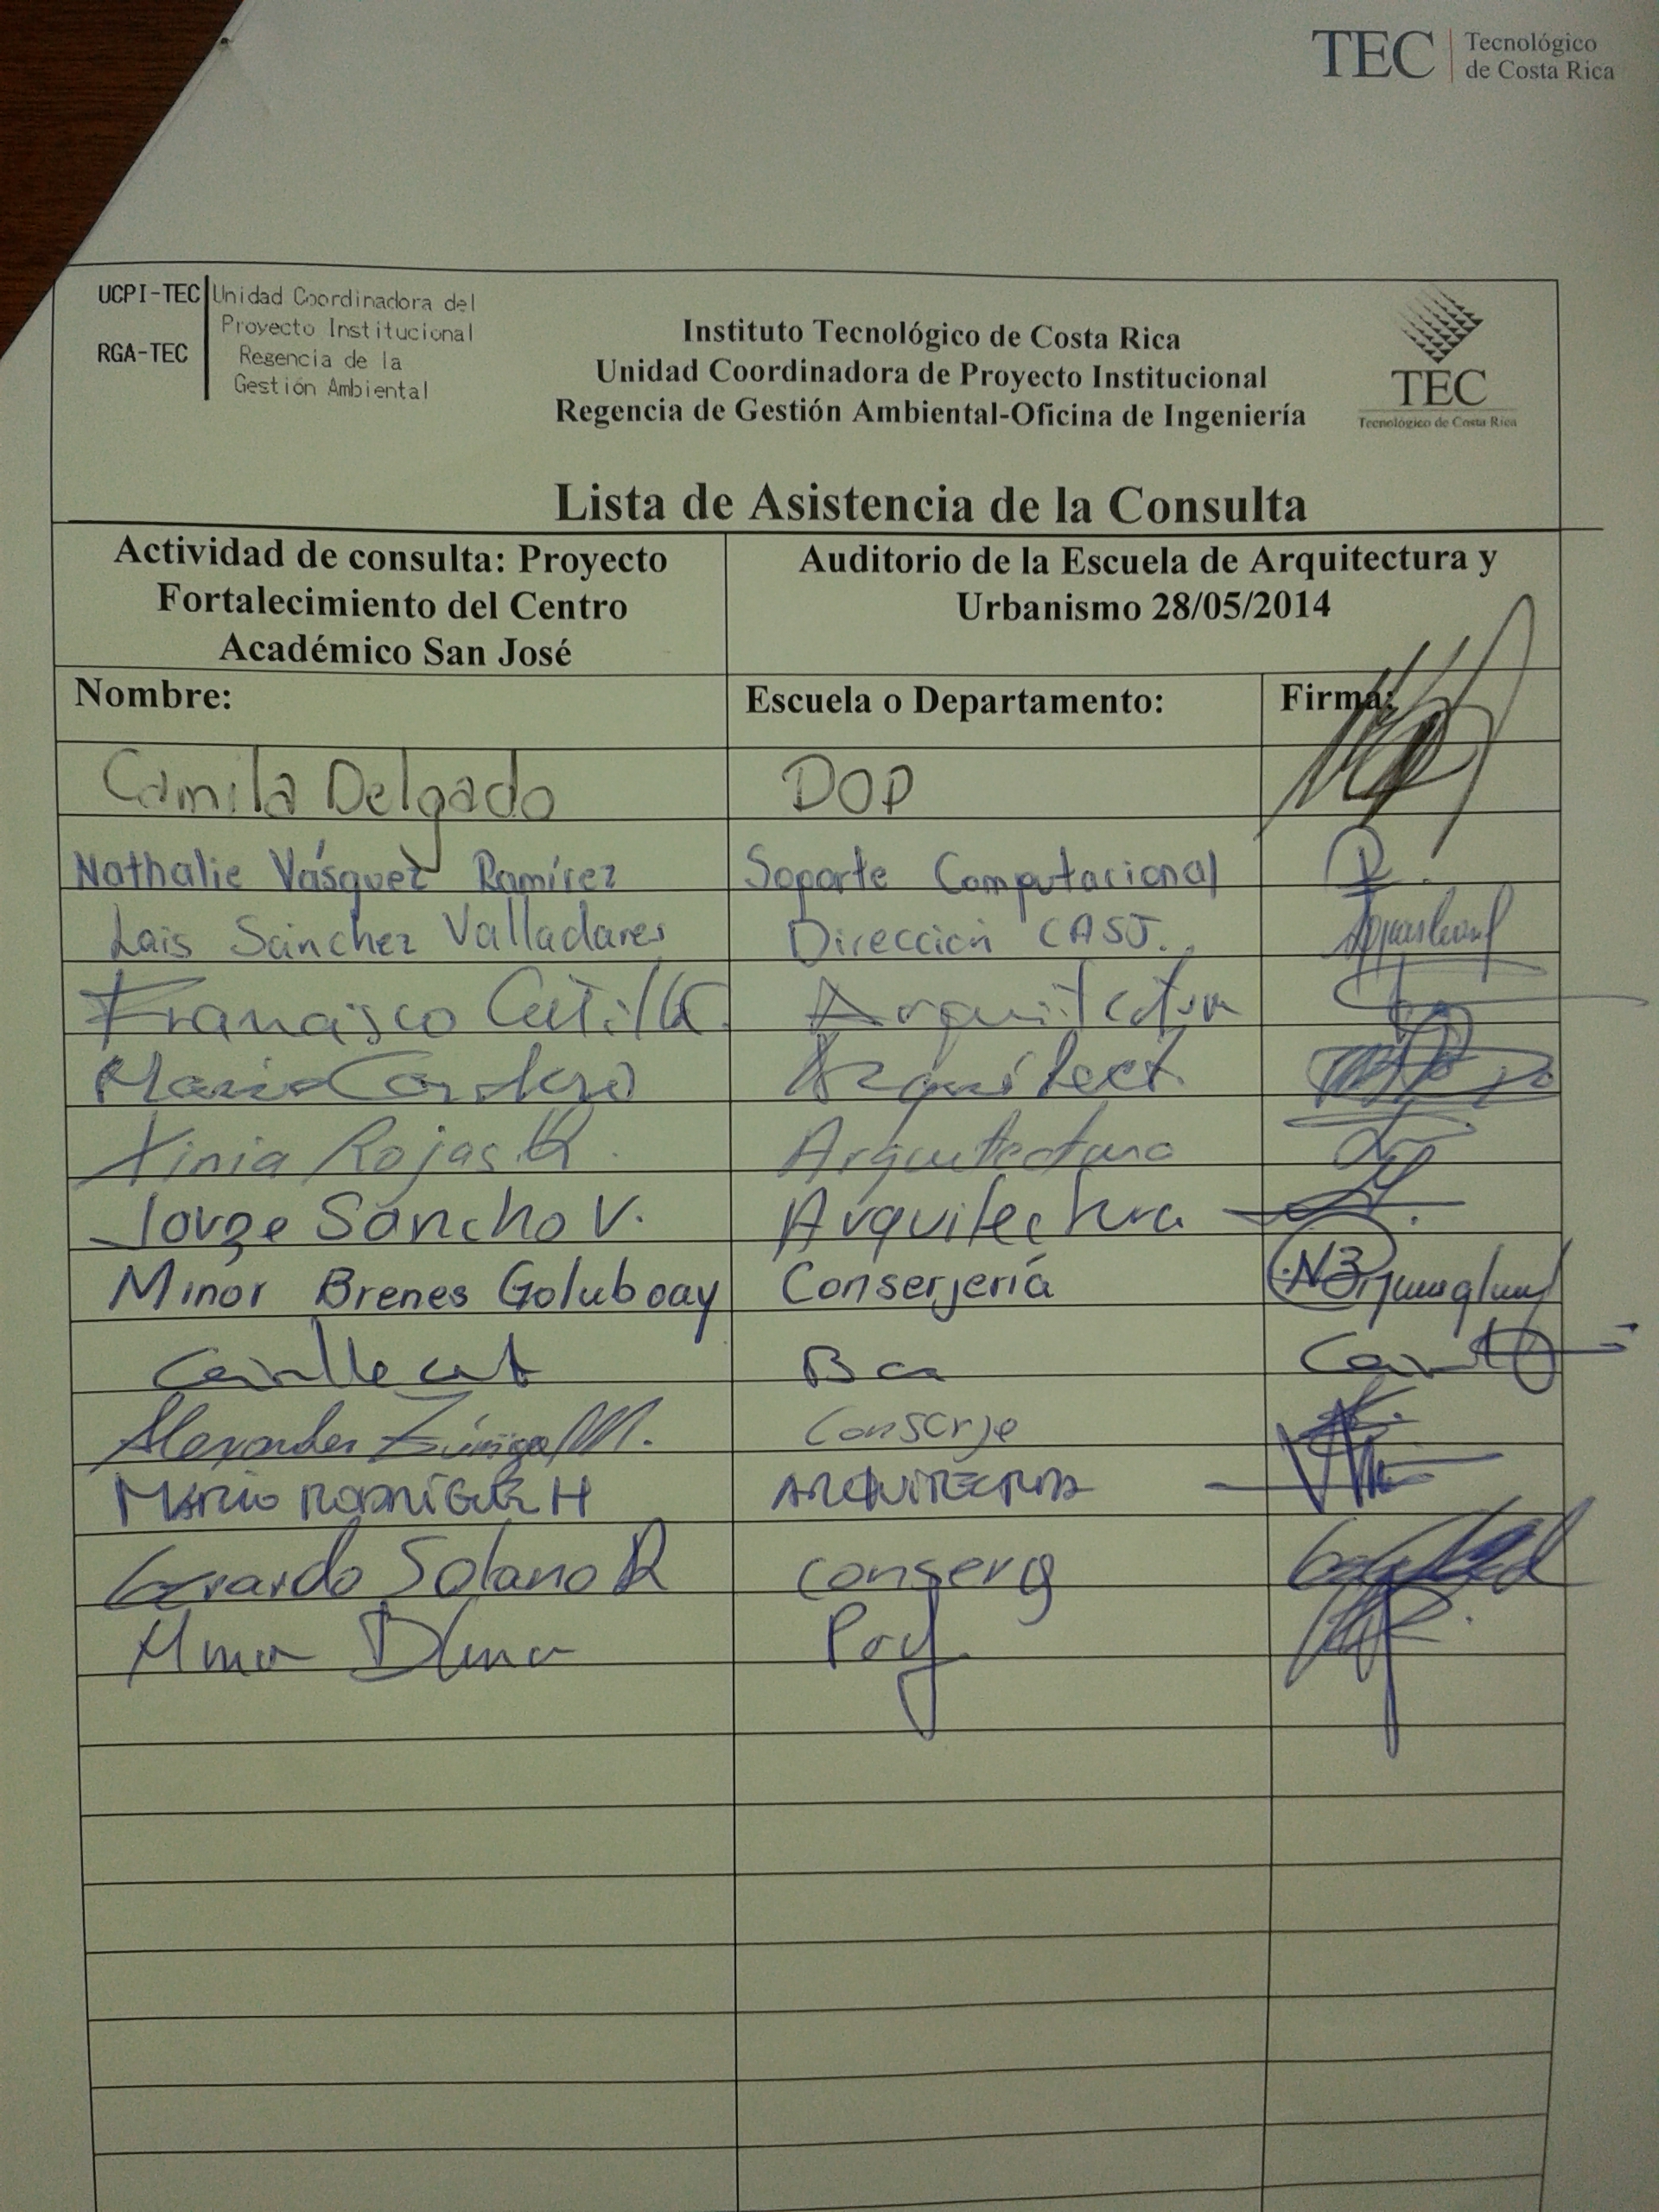 TEC Tecnológico
de Costa Rica
UCPI-TEC Unidad Coordinadora del
Proyecto Institucional
RGA-TEC Regencia de la
Gestión Ambiental
Instituto Tecnológico de Costa Rica
Unidad Coordinadora de Proyecto Institucional
Regencia de Gestión Ambiental-Oficina de Ingeniería
TEC
Tecnológico de Costa Rica
Lista de Asistencia de la Consulta
Actividad de consulta: Proyecto
Fortalecimiento del Centro
Académico San José
Auditorio de la Escuela de Arquitectura y
Urbanismo 28/05/2014
Nombre: Escuela o Departamento: Firma:
Camila Delgado DOP
Nathalie Vásquez Ramírez Soporte Computacional
Lais Sánchez Valladares Dirección CASJ.
Francisco Arquitectura
Mario Cordero Arquitect.
Xinia Rojas Arquitectura
Jorge Sancho V. Arquitectura
Minor Brenes Goluboay Conserjería
Alexander Zúñiga M. Conserje
MARIO RODRÍGUEZ H ARQUITECTURA
Gerardo Solano R Conserg